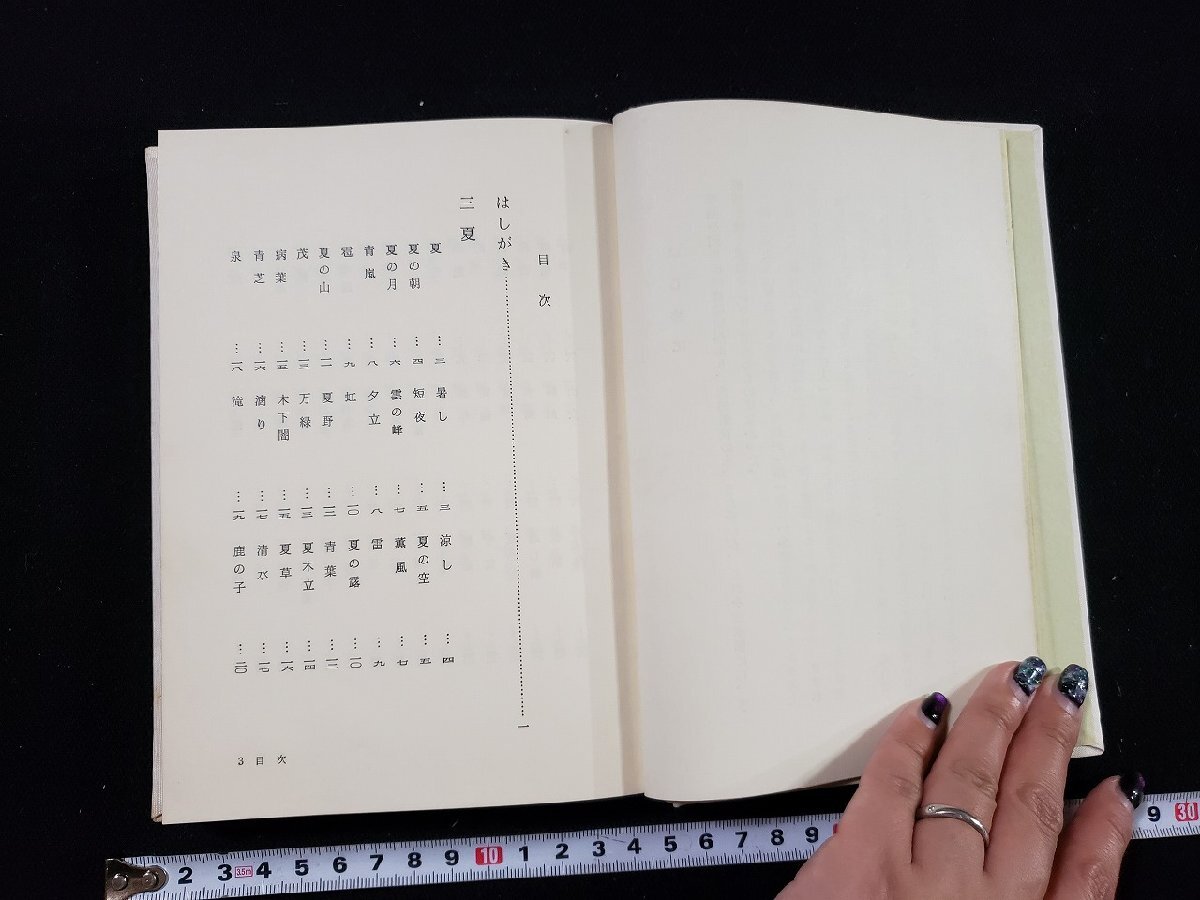 目次
はしがき……一
三夏
夏…三 暑し…三 涼し…四
夏の朝…四 短夜…五 夏の空…五
夏の月…六 雲の峰…七 薫風…七
青嵐…八 夕立…八 雷…九
雹…九 虹…一〇 夏の露…一〇
夏の山…一一 夏野…一二 青葉…一二
茂…一三 万緑…一三 夏木立…一四
病葉…一五 木下闇…一五 夏草…一六
青芝…一六 滴り…一七 清水…一七
泉…一八 滝…一九 鹿の子…二〇
3 目次
2 3 3.5m 4 5 6 7 8 9 10 1 2 3 4 5 6 7 8 9 9 30